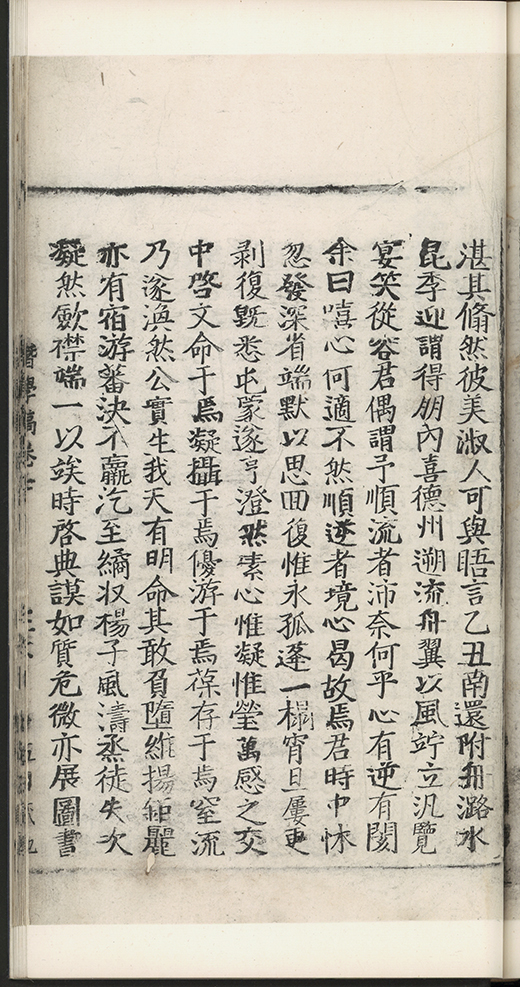 湛其翛然彼美淑人可與晤言乙丑南還附舟潞水
昆季迎謂得朋內喜德州遡流舟翼以風竚立汎覽
宴笑從容君偶謂予順流者沛奈何乎心有逆有閡
余曰嘻心何適不然順逆者境心曷故焉君時中怵
忽發深省端默以思回復惟永孤蓬一榻宵旦屢更
剥復既悉屯蒙遂亨澄然素心惟凝惟瑩萬感之交
中啓文命于焉凝攝于焉優游于焉葆存于焉窒流
乃遂渙然公實生我天有明命其敢負墮維揚麗
亦有宿游蕃決不羸汔至繘収楊子風濤烝徒失次
凝然歛襟端一以竢時啓典謨如質危微亦展圖書
學稿卷十